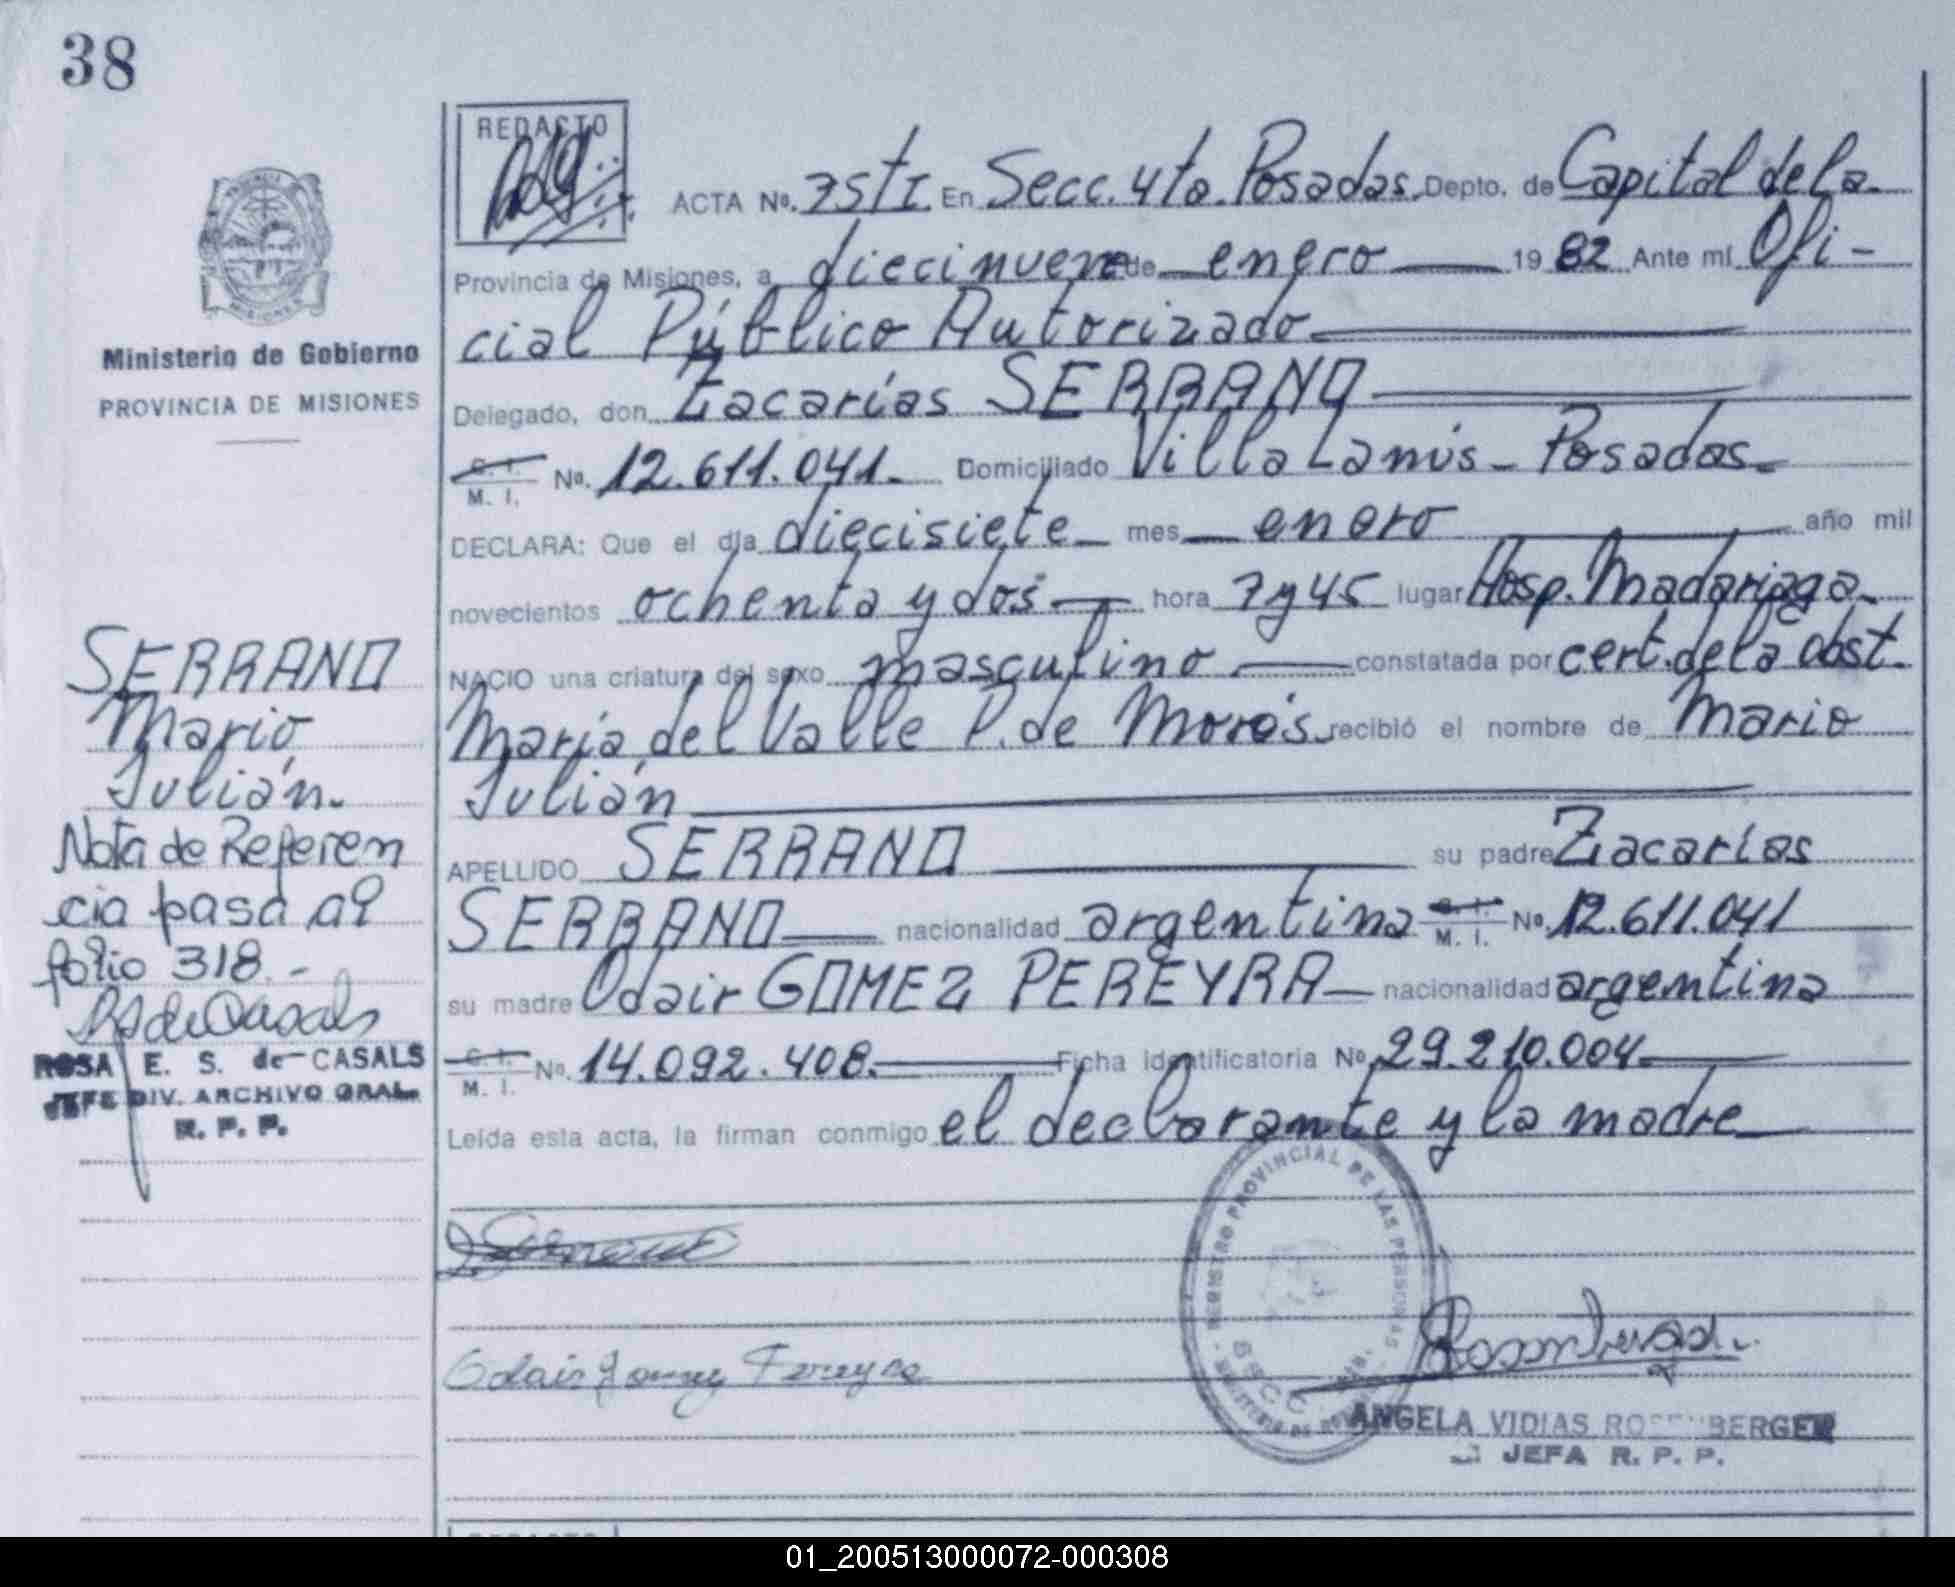 38
REDACTO
ACTA Nº. 75tI En Secc. 4ta. Posadas. Depto. de Capital de la
Provincia de Misiones, a diecinueve de enero 1982 Ante mí Ofi-
cial Público Autorizado
Ministerio de Gobierno
PROVINCIA DE MISIONES
Delegado, don Zacarías SERRANO
C. I. M. I. Nº. 12.611.041. Domiciliado Villa Lanús - Posadas.
DECLARA: Que el día diecisiete mes enero año mil
novecientos ochenta y dos hora 7 y 45 lugar Hosp. Madariaga.
NACIO una criatura del sexo masculino constatada por cert. de la obst.
María del Valle P. de Morás recibió el nombre de Mario
Julián
APELLIDO SERRANO su padre Zacarías
SERRANO nacionalidad argentina C. I. M. I. Nº. 12.611.041
su madre Odair GOMEZ PEREYRA nacionalidad argentina
C. I. M. I. Nº. 14.092.408. Ficha identificatoria Nº. 29.210.004.
Leída esta acta, la firman conmigo el declarante y la madre
SERRANO
Mario
Julián.
Nota de Referen
cia pasa al
folio 318.-
RS de Casals
ROSA E. S. de CASALS
JEFE DIV. ARCHIVO GRAL.
R. P. P.
Odair Gomez Pereyra
REGISTRO PROVINCIAL DE LAS PERSONAS
ANGELA VIDIAS ROSENBERGER
JEFA R. P. P.
REDACTO
01_200513000072-000308